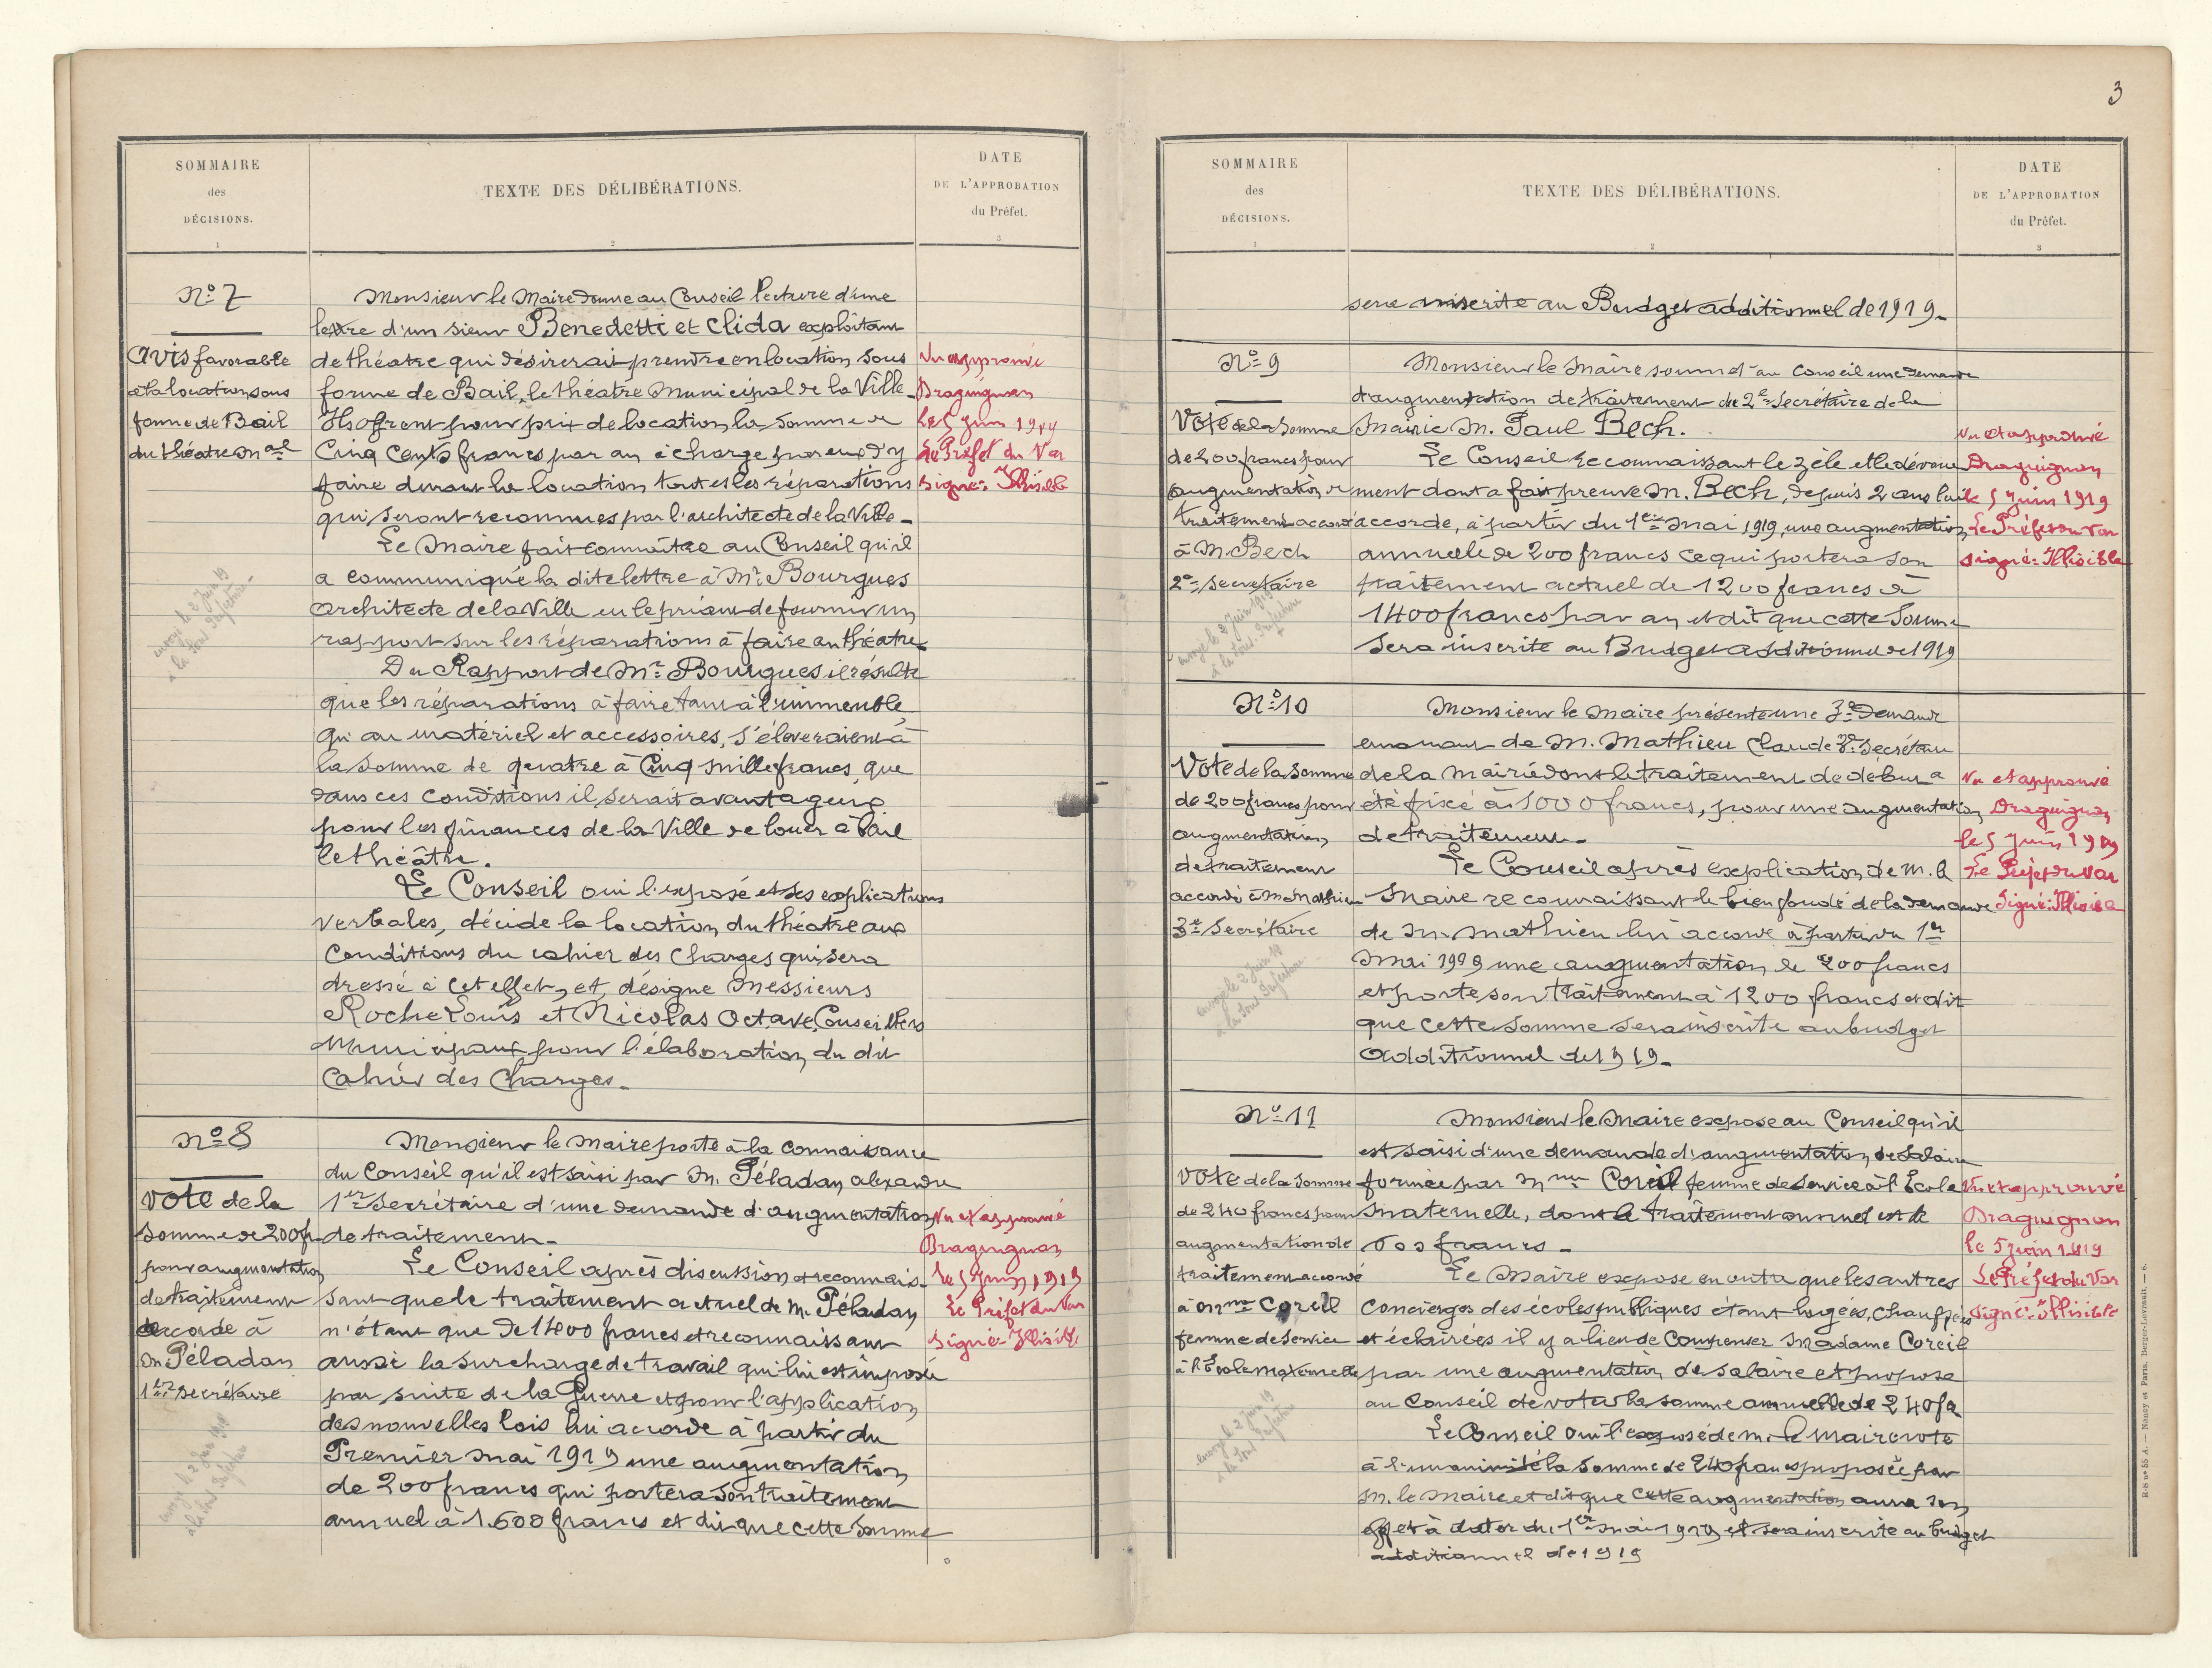 SOMMAIRE
des
DÉCISIONS.
1
TEXTE DES DÉLIBÉRATIONS.
2
DATE
DE L'APPROBATION
du Préfet.
3
No 7
Avis favorable
à la location sous
forme de Bail
du théâtre Mal
Monsieur le Maire donne au Conseil lecture d'une
lettre d'un sieur Benedetti et Clida exploitant
de théatre qui désirerait prendre en location sous
forme de Bail, le théatre Municipal de la Ville_
Ils offrent pour prix de location, la somme de
Cinq Cents francs par an à charge par eux d'y
faire durant la location toutes les réparations
qui seront reconnues par l'architecte de la Ville_
Le Maire fait connaître au Conseil qu'il
a communiqué la dite lettre à Mr. Bourgues
architecte de la Ville en le priant de fournir un
rapport sur les réparations à faire au théatre
Du Rapport de Mr. Bourgues il résulte
que les réparations à faire tant à l'immeuble
qu'au matériel et accessoires, s'éleveraient à
la somme de quatre à Cinq mille francs, que
dans ces conditions il serait avantageux
pour les finances de la Ville de louer à bail
le théâtre.
Le Conseil oui l'exposé et ses explications
verbales, décide la location du théatre aux
Conditions du cahier des Charges qui sera
dressé à cet effet, et désigne Messieurs
Roche Louis et Nicolas Octave, Conseillers
Municipaux pour l'élaboration du dit
Cahier des Charges_
Vu approuvé
Draguignan
le 5 Juin 1919
Le Préfet du Var
signé: Illisible
envoyé le 2 Juin 19
à la Sous Préfecture
No 8
Vote de la
somme de 200 fr
pour augmentation
de traitement
accordé à
M Péladan
1er Secrétaire
Monsieur le Maire porte à la connaissance
du Conseil qu'il est saisi par M. Péladan Alexandre
1er Secrétaire d'une demande d'augmentation
de traitement_
Le Conseil après discussion et reconnais-
sant que le traitement actuel de M. Péladan
n'étant que de 1400 francs et reconnaissant
aussi la surcharge de travail qui lui est imposée
par suite de la Guerre et pour l'application
des nouvelles lois lui accorde à partir du
Premier Mai 1919 une augmentation
de 200 francs qui portera son traitement
annuel à 1.600 francs et dit que cette somme
Vu et approuvé
Draguignan
le 5 Juin 1919
Le Préfet du Var
signé: Illisible
envoyé le 2 Juin 19
à la Sous Préfecture
3
SOMMAIRE
des
DÉCISIONS.
1
TEXTE DES DÉLIBÉRATIONS.
2
DATE
DE L'APPROBATION
du Préfet.
3
sera inscrite au Budget additionnel de 1919_
No 9
Vote de la somme
de 200 francs pour
augmentation de
traitement accordé
à M. Bech
2e Secrétaire
Monsieur le Maire soumet au Conseil une demande
d'augmentation de traitement du 2e Secrétaire de la
Mairie M. Paul Bech.
Le Conseil reconnaissant le zèle et le dévoue
ment dont a fait preuve M. Bech, depuis 2 ans lui
accorde, à partir du 1er Mai 1919, une augmentation
annuelle de 200 francs ce qui portera son
traitement actuel de 1200 francs à
1400 francs par an et dit que cette somme
sera inscrite au Budget additionnel de 1919
Vu et approuvé
Draguignan
le 5 Juin 1919
Le Préfet du Var
signé: Illisible
envoyé le 2 Juin 1919
à la Sous Préfecture
No 10
Vote de la somme
de 200 francs pour
augmentation
de traitement
accordé à M Mathieu
3e Secrétaire
Monsieur le Maire présente une 3e demande
émanant de M. Mathieu Claude 3e Secrétaire
de la Mairie dont le traitement de début a
été fixé à 1000 francs, pour une augmentation
de traitement_
Le Conseil après explication de M. le
Maire reconnaissant le bien fondé de la demande
de M. Mathieu lui accorde à partir du 1er
Mai 1919 une augmentation de 200 francs
et porte son traitement à 1200 francs et dit
que cette somme sera inscrite au budget
additionnel de 1919_
Vu et approuvé
Draguignan
le 5 Juin 1919
Le Préfet du Var
Signé: Illisible
envoyé le 2 Juin 19
à la Sous Préfecture
No 11
Vote de la somme
de 240 francs pour
augmentation de
traitement accordé
à Mme Coreil
femme de service
à l'École Maternelle
Monsieur le Maire expose au Conseil qu'il
est saisi d'une demande d'augmentation de salaire
formée par Mme Coreil femme de service à l'École
Maternelle, dont le traitement annuel est de
600 francs_
Le Maire expose en outre que les autres
Concierges des écoles publiques étant logées, chauffées
et éclairées il y a lieu de compenser Madame Coreil
par une augmentation de salaire et propose
au Conseil de voter la somme annuelle de 240 fr
Le Conseil oui l'exposé de M. le Maire vote
à l'unanimité la somme de 240 francs proposée par
M. le Maire et dit que cette augmentation aura son
effet à dater du 1er Mai 1919 et sera inscrite au budget
additionnel de 1919
Vu et approuvé
Draguignan
le 5 Juin 1919
Le Préfet du Var
signé: Illisible
envoyé le 2 Juin 19
à la Sous Préfecture
R-S no 55 A. — Nancy et Paris. Berger-Levrault. — 6.